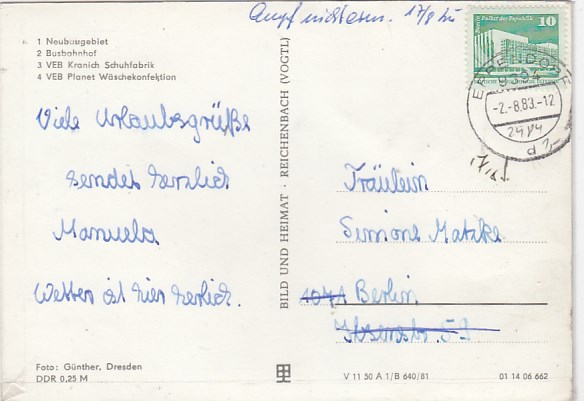 Empf nicht erm. 17/8
1 Neubaugebiet
2 Busbahnhof
3 VEB Kranich Schuhfabrik
4 VEB Planet Wäschekonfektion
Viele Urlaubsgrüße
sendet herzlich
Manuela
Wetter ist hier herlich.
Foto: Günther, Dresden
DDR 0,25 M
BILD UND HEIMAT · REICHENBACH (VOGTL)
Palast der Republik
10
EPPENDORF
9384
-2.-8.83.-12
Fräulein
Simone Matzke
1071 Berlin
Ibsenstr. 53
V 11 50 A 1/B 640/81
01 14 06 662